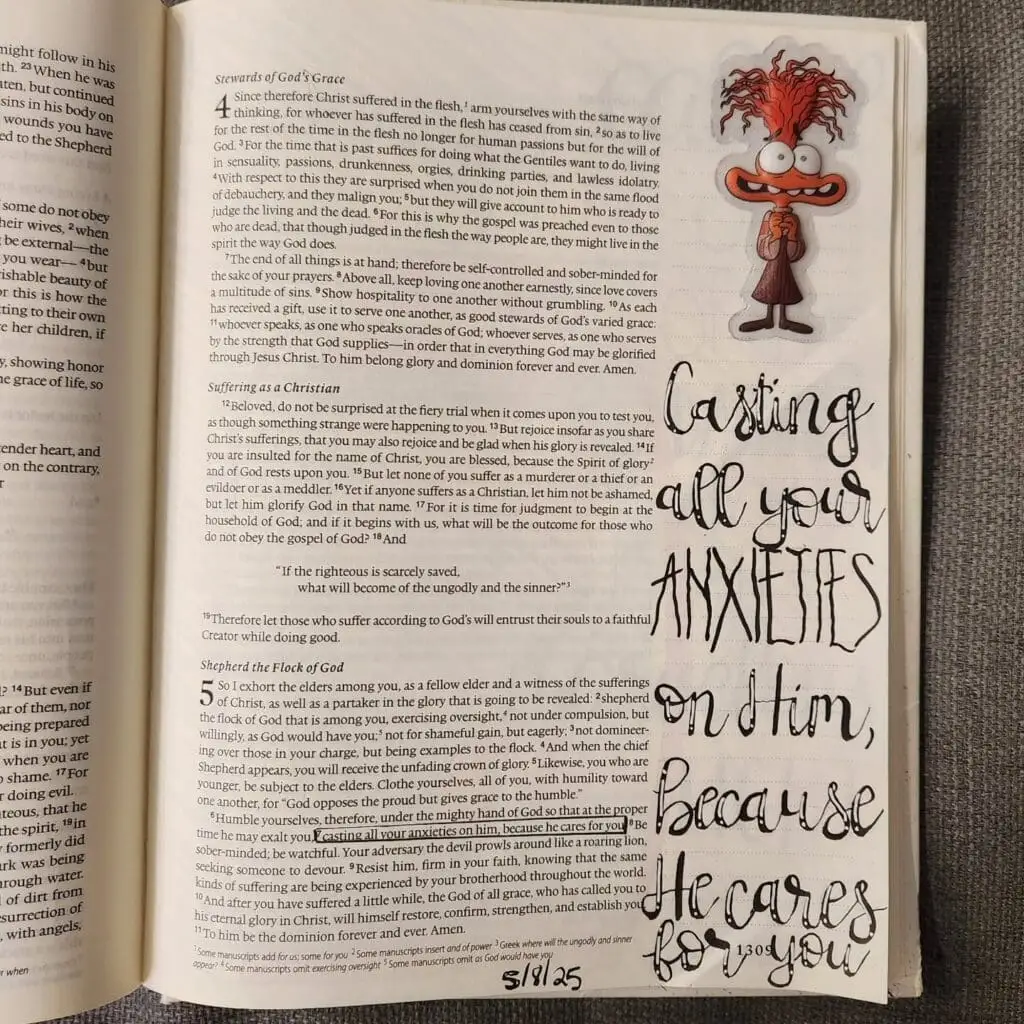 might follow in his
th. 23 When he was
aten, but continued
sins in his body on
wounds you have
ed to the Shepherd
some do not obey
heir wives, 2 when
be external—the
you wear— 4 but
rishable beauty of
or this is how the
tting to their own
re her children, if
y, showing honor
he grace of life, so
tender heart, and
on the contrary,
r
? 14 But even if
ar of them, nor
being prepared
t is in you; yet
when you are
o shame. 17 For
r doing evil.
teous, that he
the spirit, 19 in
formerly did
ark was being
hrough water.
l of dirt from
surrection of
, with angels,
or when
Stewards of God's Grace
4 Since therefore Christ suffered in the flesh,1 arm yourselves with the same way of
thinking, for whoever has suffered in the flesh has ceased from sin, 2 so as to live
for the rest of the time in the flesh no longer for human passions but for the will of
God. 3 For the time that is past suffices for doing what the Gentiles want to do, living
in sensuality, passions, drunkenness, orgies, drinking parties, and lawless idolatry.
4 With respect to this they are surprised when you do not join them in the same flood
of debauchery, and they malign you; 5 but they will give account to him who is ready to
judge the living and the dead. 6 For this is why the gospel was preached even to those
who are dead, that though judged in the flesh the way people are, they might live in the
spirit the way God does.
7 The end of all things is at hand; therefore be self-controlled and sober-minded for
the sake of your prayers. 8 Above all, keep loving one another earnestly, since love covers
a multitude of sins. 9 Show hospitality to one another without grumbling. 10 As each
has received a gift, use it to serve one another, as good stewards of God's varied grace:
11 whoever speaks, as one who speaks oracles of God; whoever serves, as one who serves
by the strength that God supplies—in order that in everything God may be glorified
through Jesus Christ. To him belong glory and dominion forever and ever. Amen.
Suffering as a Christian
12 Beloved, do not be surprised at the fiery trial when it comes upon you to test you,
as though something strange were happening to you. 13 But rejoice insofar as you share
Christ's sufferings, that you may also rejoice and be glad when his glory is revealed. 14 If
you are insulted for the name of Christ, you are blessed, because the Spirit of glory2
and of God rests upon you. 15 But let none of you suffer as a murderer or a thief or an
evildoer or as a meddler. 16 Yet if anyone suffers as a Christian, let him not be ashamed,
but let him glorify God in that name. 17 For it is time for judgment to begin at the
household of God; and if it begins with us, what will be the outcome for those who
do not obey the gospel of God? 18 And
"If the righteous is scarcely saved,
what will become of the ungodly and the sinner?"3
19 Therefore let those who suffer according to God's will entrust their souls to a faithful
Creator while doing good.
Shepherd the Flock of God
5 So I exhort the elders among you, as a fellow elder and a witness of the sufferings
of Christ, as well as a partaker in the glory that is going to be revealed: 2 shepherd
the flock of God that is among you, exercising oversight,4 not under compulsion, but
willingly, as God would have you;5 not for shameful gain, but eagerly; 3 not domineer-
ing over those in your charge, but being examples to the flock. 4 And when the chief
Shepherd appears, you will receive the unfading crown of glory. 5 Likewise, you who are
younger, be subject to the elders. Clothe yourselves, all of you, with humility toward
one another, for "God opposes the proud but gives grace to the humble."
6 Humble yourselves, therefore, under the mighty hand of God so that at the proper
time he may exalt you, casting all your anxieties on him, because he cares for you. 8 Be
sober-minded; be watchful. Your adversary the devil prowls around like a roaring lion,
seeking someone to devour. 9 Resist him, firm in your faith, knowing that the same
kinds of suffering are being experienced by your brotherhood throughout the world.
10 And after you have suffered a little while, the God of all grace, who has called you to
his eternal glory in Christ, will himself restore, confirm, strengthen, and establish you.
11 To him be the dominion forever and ever. Amen.
1 Some manuscripts add for us; some for you 2 Some manuscripts insert and of power 3 Greek where will the ungodly and sinner
appear? 4 Some manuscripts omit exercising oversight 5 Some manuscripts omit as God would have you
5/8/25
Casting
all your
ANXIETIES
on Him,
because
He cares
for you
1309